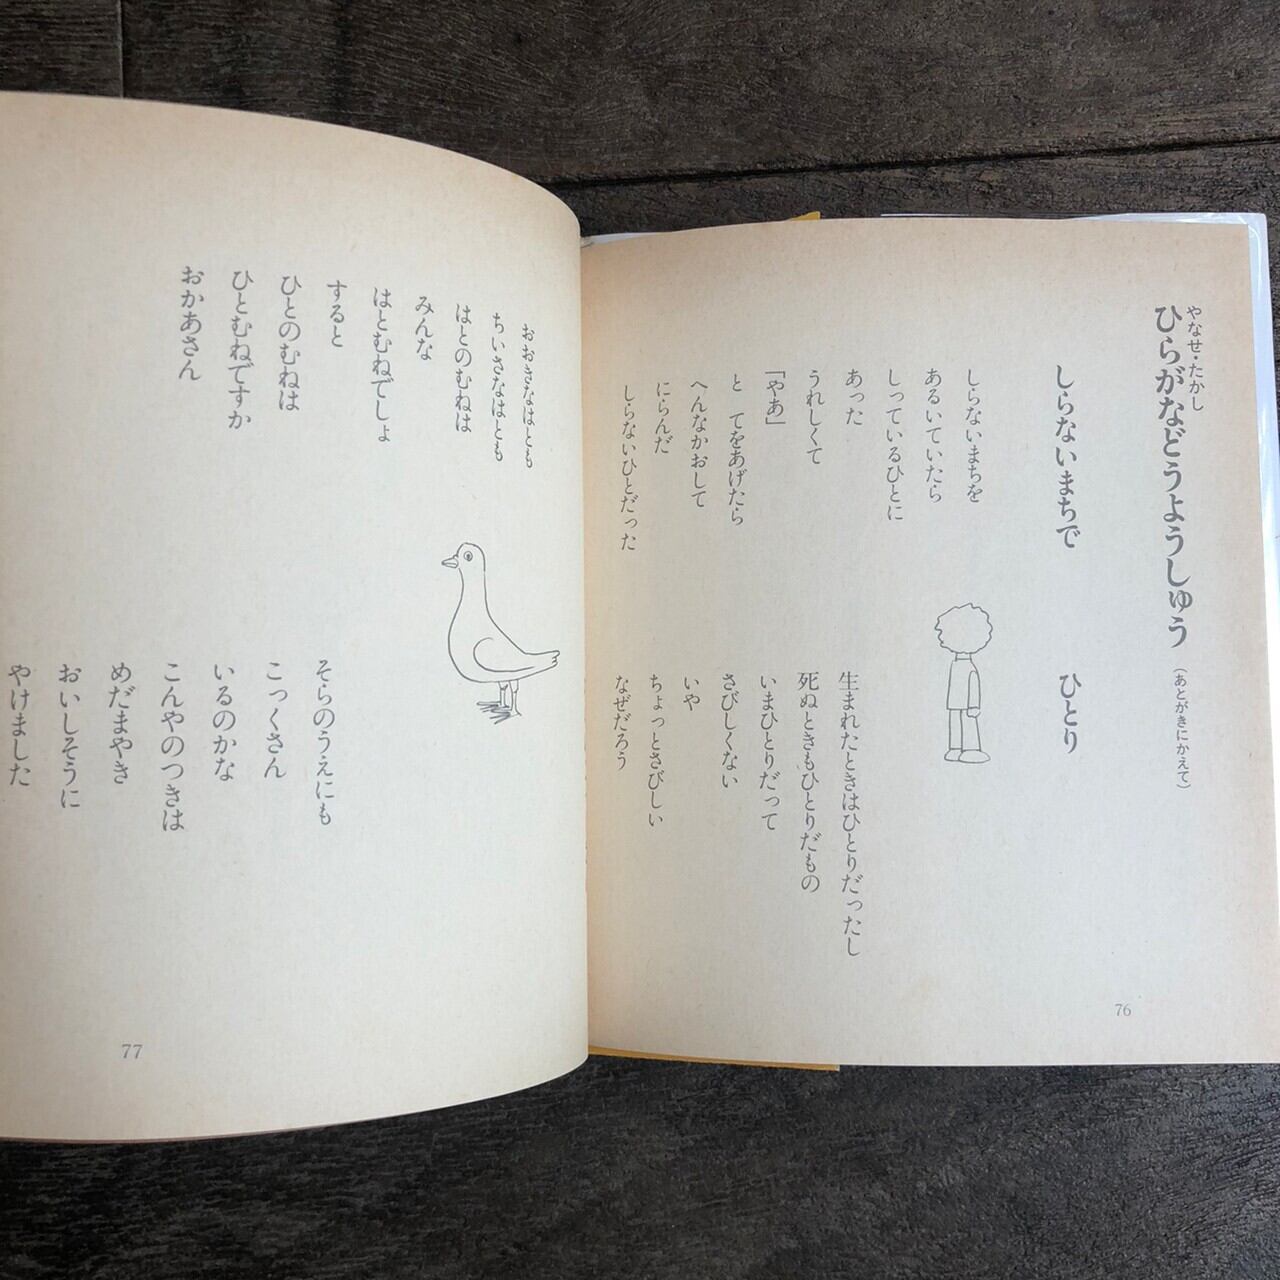 やなせ・たかし
ひらがなどうようしゅう
（あとがきにかえて）
しらないまちで
しらないまちを
あるいていたら
しっているひとに
あった
うれしくて
「やあ」
と　てをあげたら
へんなかおして
にらんだ
しらないひとだった
ひとり
生まれたときはひとりだったし
死ぬときもひとりだもの
いまひとりだって
さびしくない
いや
ちょっとさびしい
なぜだろう
76
おおきなはとも
ちいさなはとも
はとのむねは
みんな
はとむねでしょ
すると
ひとのむねは
ひとむねですか
おかあさん
そらのうえにも
こっくさん
いるのかな
こんやのつきは
めだまやき
おいしそうに
やけました
77